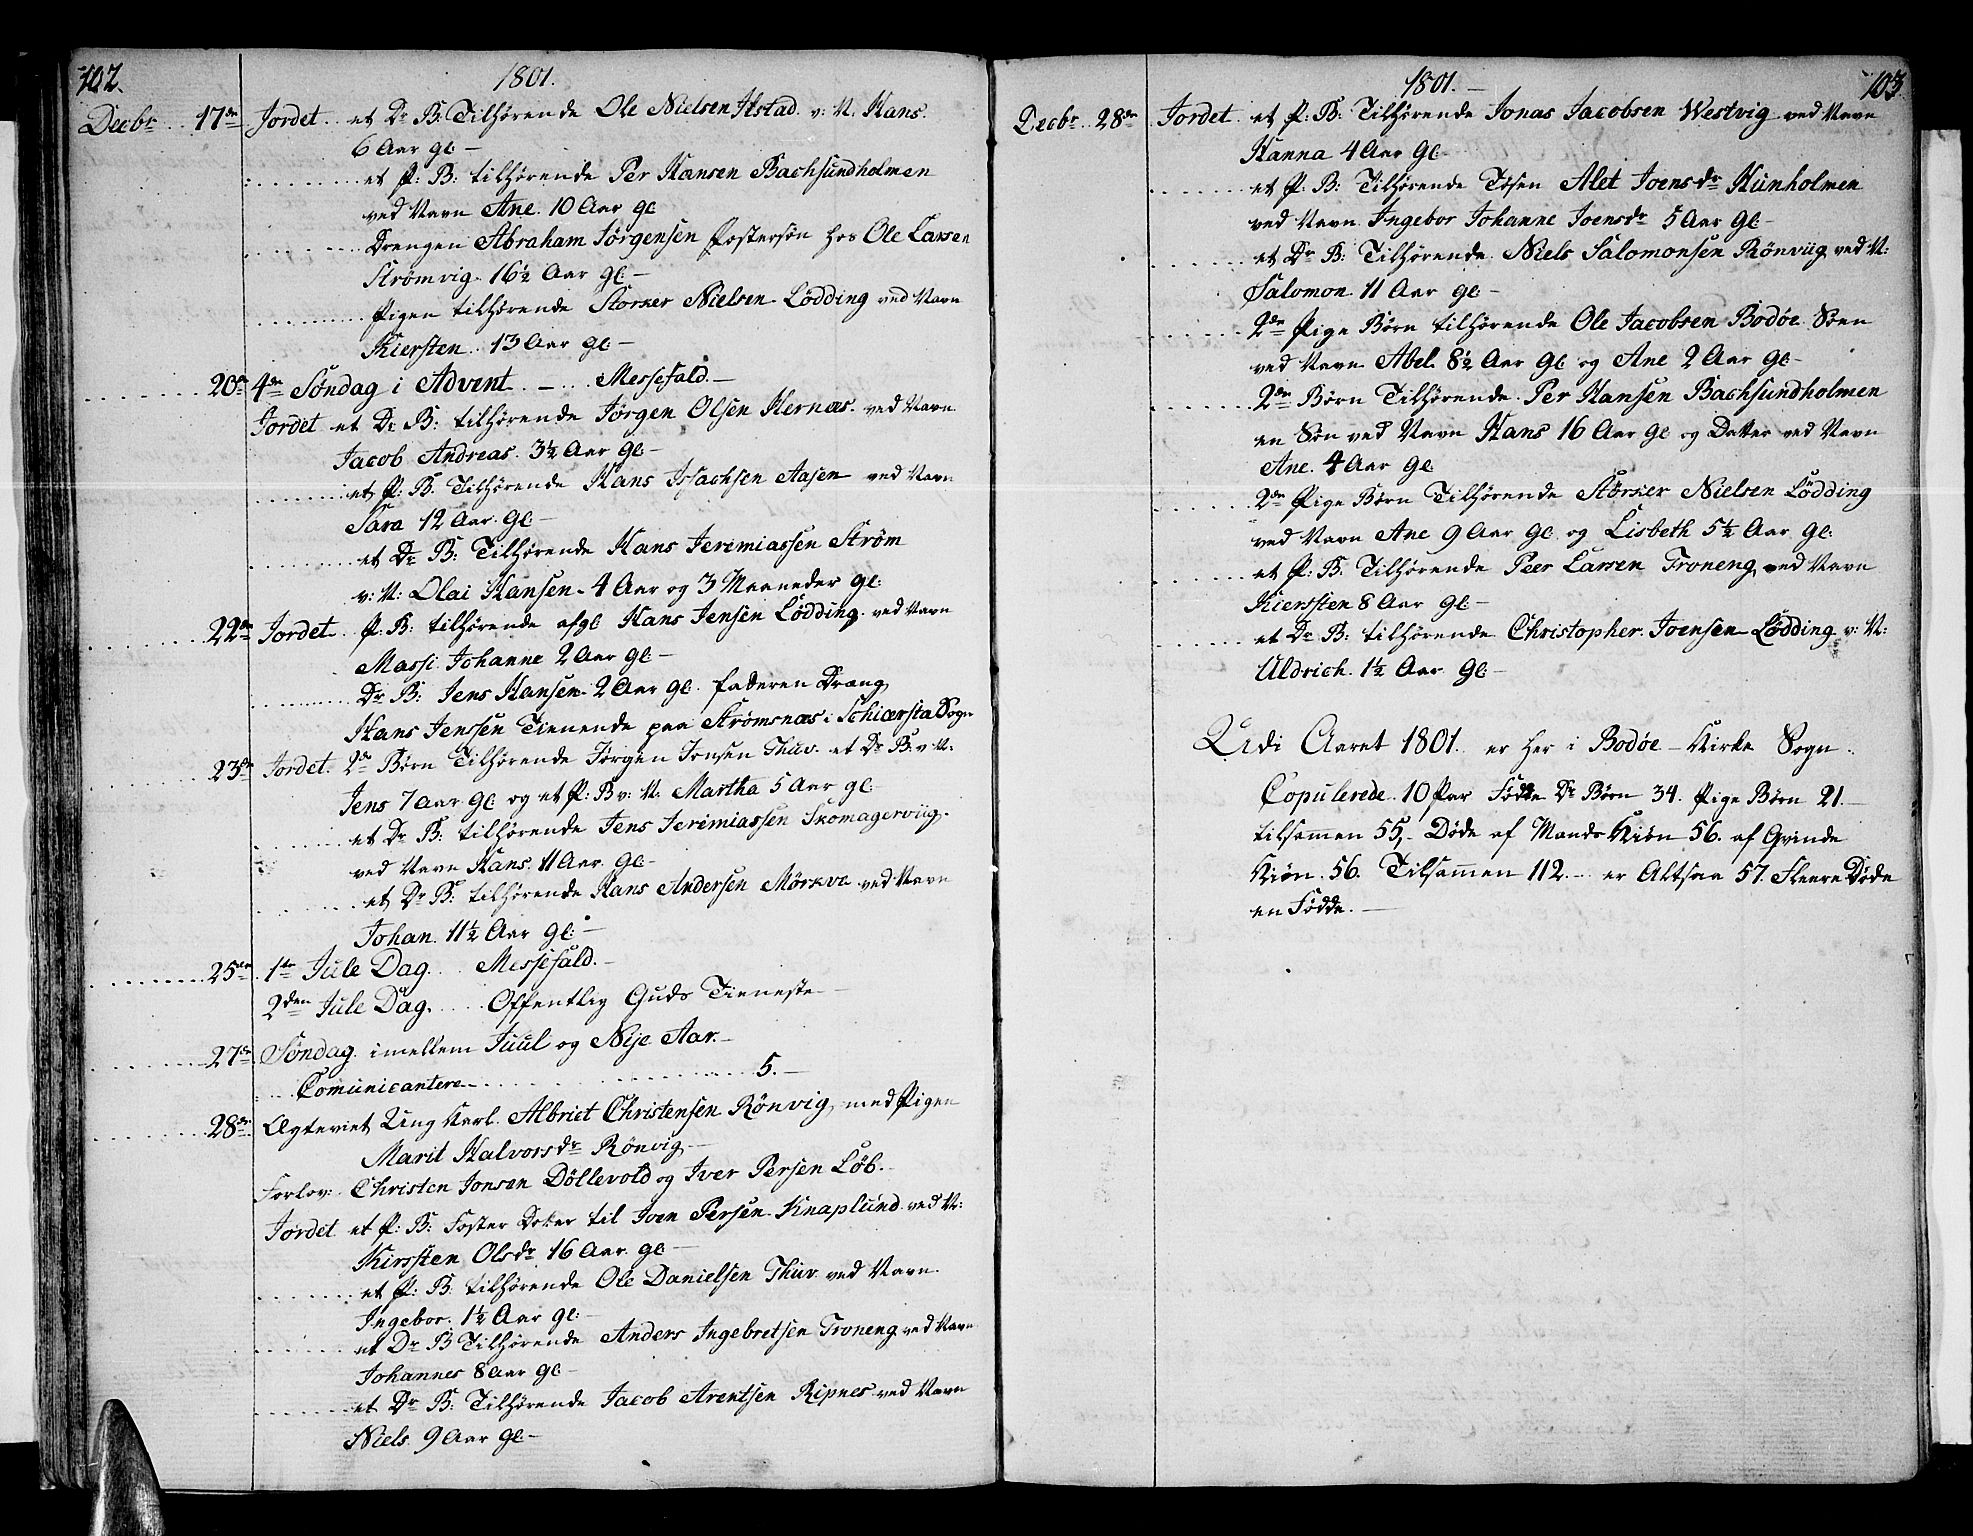 102.
1801.
Decbr. . . 17de Jordet . et Dr. B. Tilhørende Ole Nielsen Ilstad. v: N. Hans.
6 Aar gl: –
. . . . . . . . . et P: B: tilhørende Per Hansen Bachsundholmen
ved Navn Ane. 10 Aar gl
. . . . . . . . . Drengen Abraham Jørgensen Fostersøn hos Ole Larsen
Strømvig. 16½ Aar gl: –
. . . . . . . . . Pigen tilhørende Størker Nielsen Lødding ved Navn
Kiersten. . 13 Aar gl –
. . . . . . . 20de 4de Søndag i Advent. . – . . Messefald. –
Jordet et Dr. B: tilhørende Jørgen Olsen Hernæs. ved Navn
Jacob Andreas. 3½ Aar gl –
. . . . . . . . . et P: B. Tilhørende Hans Isachsen Aasen ved Navn
Sara 12 Aar. gl –
. . . . . . . . . et Dr. B: Tilhørende Hans Jeremiassen Strøm
v: N: Olai Hansen. 4 Aar og 3 Maaneder gl:
. . . . . . . 22de Jordet . P: B: tilhørende afgl Hans Jensen Lødding. ved Navn
Massi Johanne 2 Aar gl: –
. . . . . . . . . Dr. B: Jens Hansen. 2 Aar gl. faderen Dreng
Hans Jenssen Tienende paa Strømsnæs i Schiersta Sogn
. . . . . . . 23de Jordet. 2de Børn Tilhørende Jørgen Jonsen Thuv. et Dr. B: v: N:
Jens 7 Aar gl: og et P: B v: N: Martha 5 Aar gl: –
. . . . . . . . . et Dr. B: tilhørende Jens Jeremiassen Skomagerviig.
ved Navn Hans. 11 Aar. gl –
. . . . . . . . . et Dr. B: tilhørende Hans Andersen Mørkve ved Navn
Johan. 11½ Aar gl: –
. . . . . . . 25de 1te Jule Dag. . . Messefald. –
2den Jule Dag. . . . Offentlig Guds Tieneste –
. . . . . . . 27de Søndag imellem Juul og Nije Aar. –
. . . Comunicantere . . . . . . . . . . . . . . . . 5. –
. . . . . . . 28de Ægteviet Ung Karl. Albriet Christensen Rønvig, med Pigen
Marit Halvorsdr Rønvig –
Forlov: Christen Jonsen Døllevold og Iver Persen Løb. –
Jordet et P: B: Foster Doter til Joen Persen Knaplund ved N:
Kirssten Olsdr 16 Aar. gl –
. . . . . . . . . et P: B. tilhørende Ole Danielsen Thuv. ved Navn
Ingebor. 1½ Aar gl: –
. . . . . . . . . et Dr. B Tilhørende Anders Ingebretsen Troneng ved Navn
Johannes 8 Aar gl –
. . . . . . . . . et Dr. B: Tilhørende Jacob Arentsen Ripnes ved Navn
Niels. 9 Aar gl –
103
1801. –
Decbr. . 28de Jordet . et P: B: Tilhørende Jonas Jacobsen Westvig ved Navn
Hanna 4 Aar gl –
. . . . . . . . . et P: B: Tilhørende Tøsen Alet Joensdr Hunholmen
ved Navn Ingebor Johanne Joensdr 5 Aar gl –
. . . . . . . . . et Dr. B: Tilhørende. Niels Salomonsen Rønviig ved N:
Salomon 11 Aar gl –
. . . . . . . . . 2de Pige Børn tilhørende Ole Jacobsen Bodøe Søen
ved Navn Abel 8½ Aar gl og Ane 2 Aar gl –
. . . . . . . . . 2de Børn Tilhørende. Per Hansen Bachsundholmen
en Søn ved Navn Hans 16 Aar gl og Datter ved Navn
Ane. 4 Aar gl:
. . . . . . . . . 2de Pige Børn Tilhørende Størker Nielsen Lødding
ved Navn Ane 9 Aar gl og Lisbeth 5½ Aar gl:
. . . . . . . . . et P: B. Tilhørende Peer Larsen Troneng ved Navn
Kierssten 8 Aar gl: –
. . . . . . . . . et Dr. B: tilhørende Christopher Joensen Lødding v: N:
Uldrich. 1½ Aar gl –
Udi Aaret 1801. er her i Bodøe – Kirke Sogn :
Copulerede. 10 Par Fødde Dr. Børn 34. Pige Børn 21. –
tilsamen 55, – Døde af Mands Kiøn 56. af Qvinde
Kiøn. 56. Tilsamen 112. – er Altsaa 57. Fleere Døde
en Fødde. –